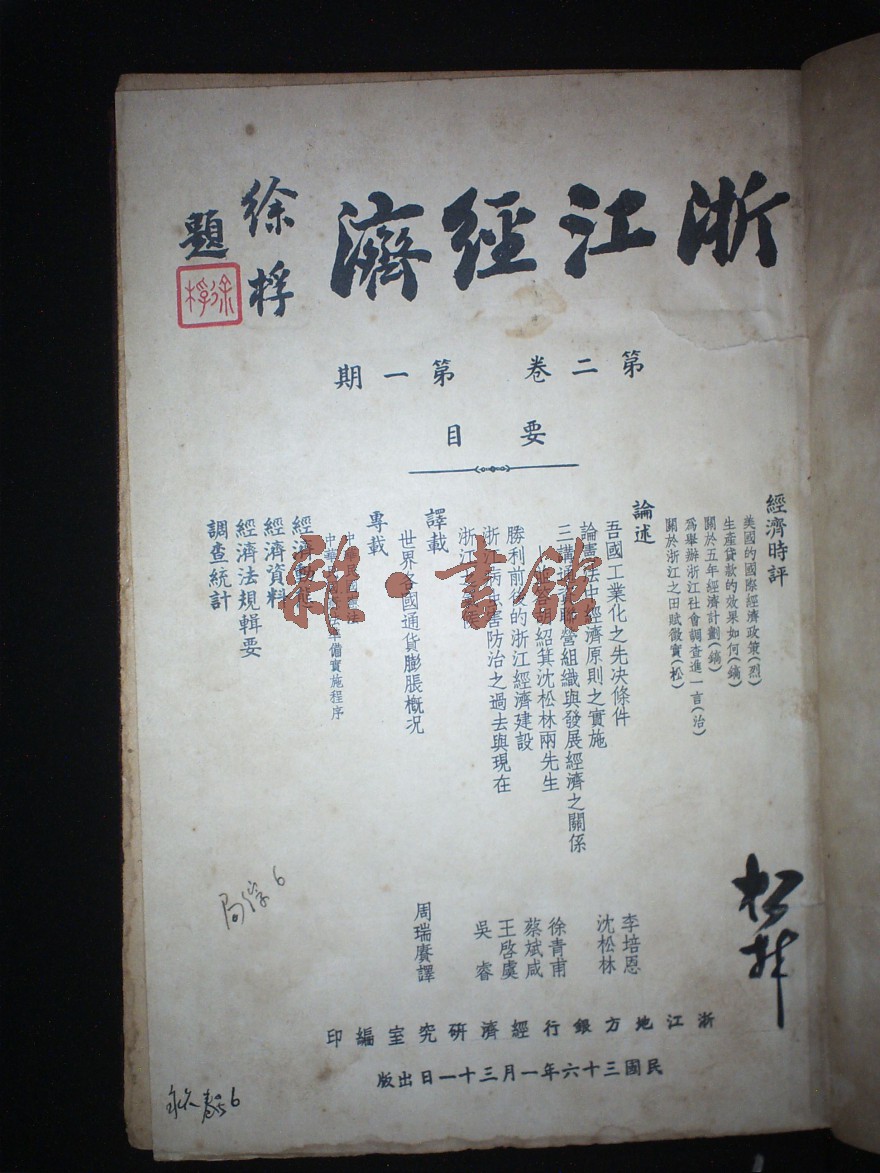 浙江經濟
徐桴
題
徐桴
第二卷 第一期
要目
經濟時評
美國的國際經濟政策(烈)
生產貸款的效果如何(鎬)
關於五年經濟計劃(鎬)
為舉辦浙江社會調查進一言(治)
關於浙江之田賦徵實(松)
論述
吾國工業化之先决條件 李培恩
論憲法中經濟原則之實施 沈松林
三講通 聯營組織與發展經濟之關係 徐青甫
紹箕沈松林兩先生 蔡斌咸
勝利前後的浙江經濟建設 王啓虞
浙 病 害防治之過去與現在 吳睿
浙江
譯載
世界各國通貨膨脹概况 周瑞賡譯
專載
中華
中華 準備實施程序
經濟
經濟資料
經濟法規輯要
調查統計
雜·書館
浙江地方銀行經濟研究室編印
民國三十六年一月三十一日出版
6
6